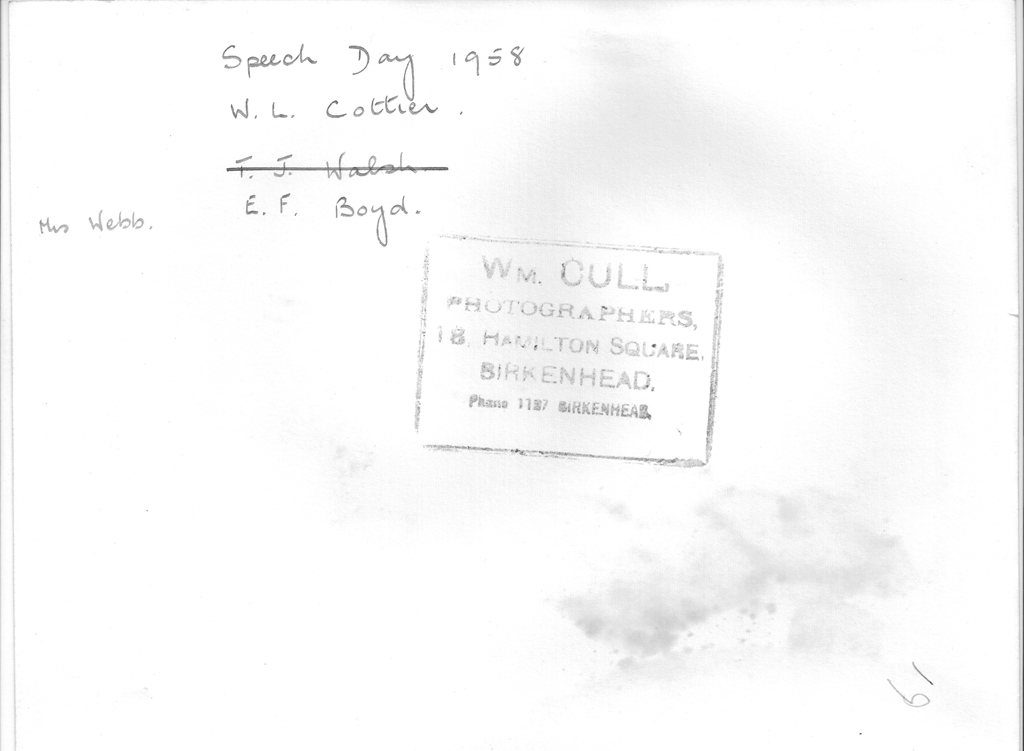 Speech Day 1958
W. L. Cottier.
T. J. Walsh
E. F. Boyd.
Mrs Webb.
WM. CULL,
PHOTOGRAPHERS,
18, HAMILTON SQUARE,
BIRKENHEAD,
Phone 1187 BIRKENHEAD.
61